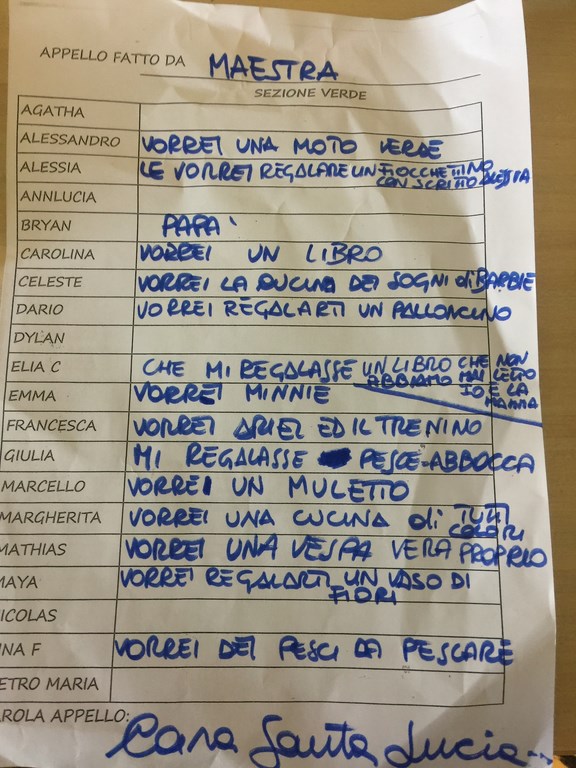 APPELLO FATTO DA MAESTRA
SEZIONE VERDE
AGATHA
ALESSANDRO VORREI UNA MOTO VERDE
ALESSIA LE VORREI REGALARE UN FIOCCHETTINO
CON SCRITTO ALESSIA
ANNLUCIA
BRYAN PAPA'
CAROLINA VORREI UN LIBRO
CELESTE VORREI LA CUCINA DEI SOGNI di BARBIE
DARIO VORREI REGALARTI UN PALLONCINO
DYLAN
ELIA C CHE MI REGALASSE UN LIBRO CHE NON
ABBIAMO MAI LETTO
IO E LA
MAMMA
EMMA VORREI MINNIE
FRANCESCA VORREI ARIEL ED IL TRENINO
GIULIA MI REGALASSE PESCE-ABBOCCA
MARCELLO VORREI UN MULETTO
MARGHERITA VORREI UNA CUCINA di TUTTI
COLORI
MATHIAS VORREI UNA VESPA VERA PROPRIO
MAYA VORREI REGALARTI UN VASO DI
FIORI
ICOLAS
NA F VORREI DEI PESCI DA PESCARE
ETRO MARIA
AROLA APPELLO: Cara Santa Lucia...